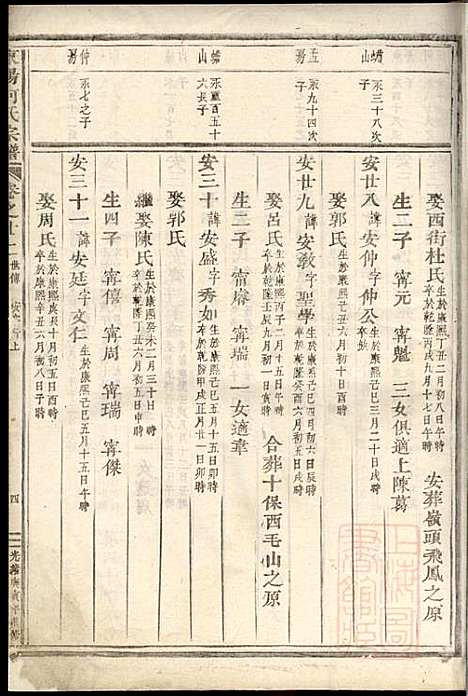 蟾山 永三十八次子
孟芴 永九十四次子
蟾山 永百五十六長子
仲芴 永七之子
娶西街杜氏 生於康熙丁丑二月初八日辰時 卒於乾隆丙戌九月十七日戌時 安葬嶺頭飛鳳之原
生二子 甯元 甯魁 三女俱適上陳葛
安廿八 諱安仲字仲公 生於康熙己巳三月二十日戌時 卒缺
娶郭氏 生於康熙 六月初十日酉時
安廿九 諱安教字聖學 生於康熙己巳四月初三日戌時 卒於乾隆癸亥六月初五日戌時
娶呂氏 生於康熙丙子二月十五日戌時 卒於乾隆壬辰九月初一日寅時 合葬十保西毛山之原
生二子 甯 甯瑞 一女適韋
安三十 諱安盛字秀如 生於康熙己巳五月十五日卯時 卒於乾隆甲戌正月廿一日卯時
娶郭氏
繼娶陳氏 生於康熙癸未二月三十日 時 卒於乾隆丁丑六月初五日申時
生四子 甯僖 甯周 甯瑞 甯傑
安三十一 諱安廷字文仁 生於康熙己巳五月十五日午時
娶周氏 生於康熙庚辰十月初五日酉時 卒於康熙辛丑六月初八日子時
東陽何氏宗譜
卷之十二 世傳
四
光緒庚寅年重修
上海圖書館藏